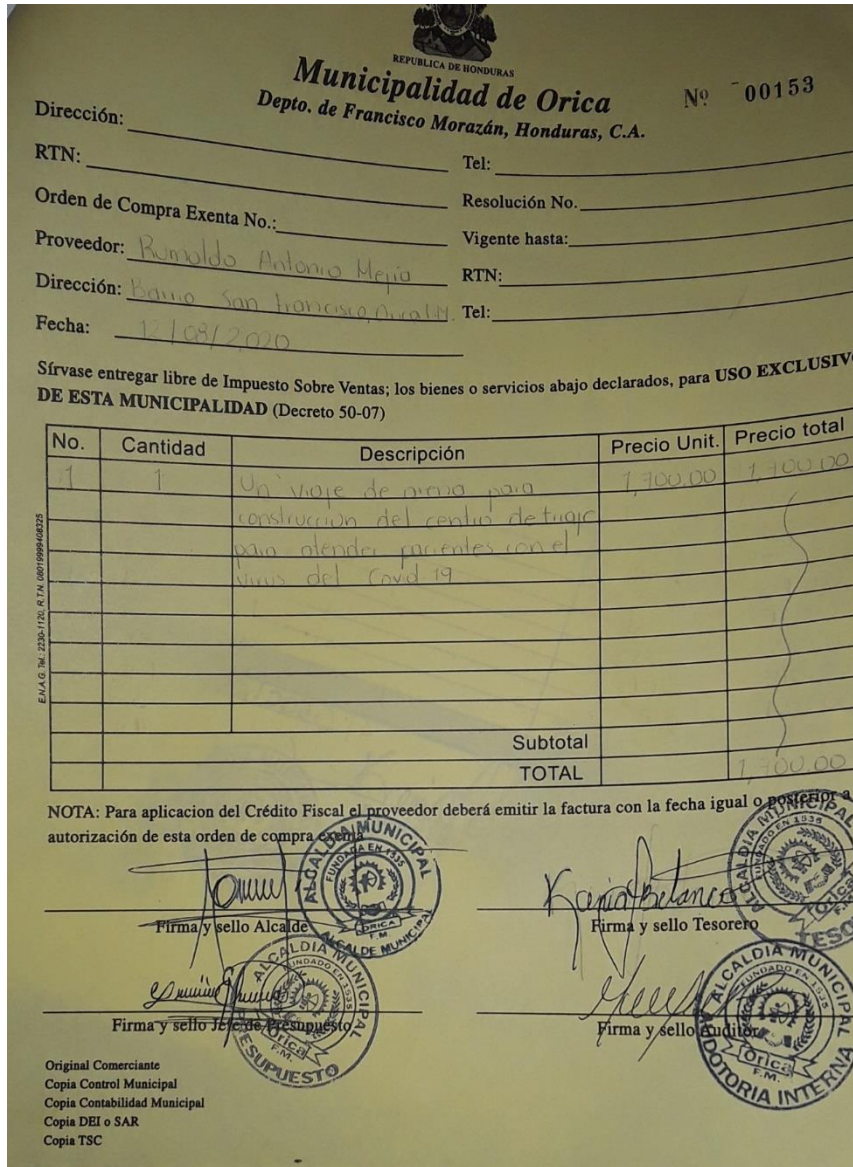 REPUBLICA DE HONDURAS
Municipalidad de Orica
Nº 00153
Depto. de Francisco Morazán, Honduras, C.A.
Dirección:
RTN:
Tel:
Orden de Compra Exenta No.:
Resolución No.
Proveedor: Rumaldo Antonio Mejía
Vigente hasta:
Dirección: Barrio San Francisco, Orica F.M.
RTN:
Fecha: 12/08/2,020
Tel:
Sírvase entregar libre de Impuesto Sobre Ventas; los bienes o servicios abajo declarados, para USO EXCLUSIVO
DE ESTA MUNICIPALIDAD (Decreto 50-07)
No. Cantidad Descripción Precio Unit. Precio total
1 1 Un viaje de arena para 1,700.00 1,700.00
construcción del centro de triaje
para atender pacientes con el
virus del Covid 19
Subtotal
TOTAL 1,700.00
E.N.A.G. Tel.: 2230-1120, R.T.N. 08019999408325
NOTA: Para aplicacion del Crédito Fiscal el proveedor deberá emitir la factura con la fecha igual o posterior a
autorización de esta orden de compra exenta
ALCALDIA MUNICIPAL
FUNDADA EN 1935
ORICA
F.M.
ALCALDE MUNICIPAL
Firma y sello Alcalde
ALCALDIA MUNICIPAL
FUNDADO EN 1935
Orica
TESO
Kenia Betanco
Firma y sello Tesorero
ALCALDIA MUNICIPAL
FUNDADO EN 1935
Orica
F.M.
PRESUPUESTO
Firma y sello Jefe de Presupuesto
ALCALDIA MUNICIPAL
FUNDADO EN 1935
Orica
F.M.
AUDOTORIA INTERNA
Firma y sello Auditor
Original Comerciante
Copia Control Municipal
Copia Contabilidad Municipal
Copia DEI o SAR
Copia TSC